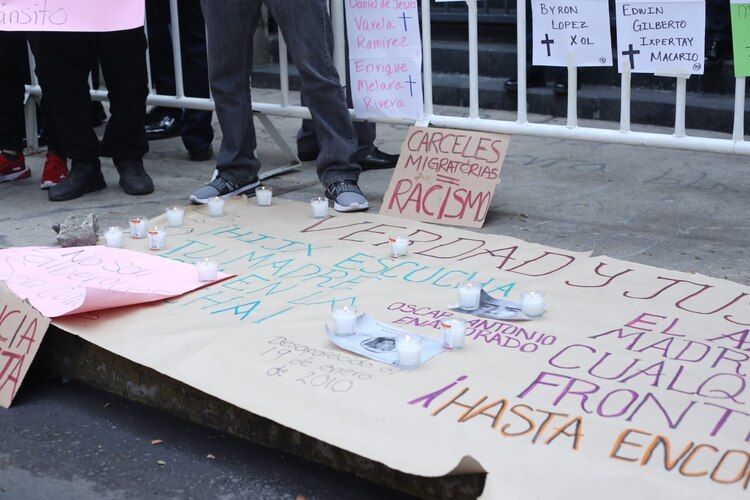 ánsito
Daniel de Jesús
Varela
Ramirez
Enrique
Melara
Rivera
BYRON
LOPEZ
XOL
EDWIN
GILBERTO
IXPERTAY
MACARIO
CARCELES
MIGRATORIAS
=
RACISMO
VERDAD Y JUS
¡HIJX ESCUCHA
TU MADRE
EN LA
CHA!
OSCAR ANTONIO
ENAMORADO
Desaparecido el
19 de enero
de 2010
No son
EL A
MADR
CUALQ
FRONT
¡HASTA ENCO
NCIA